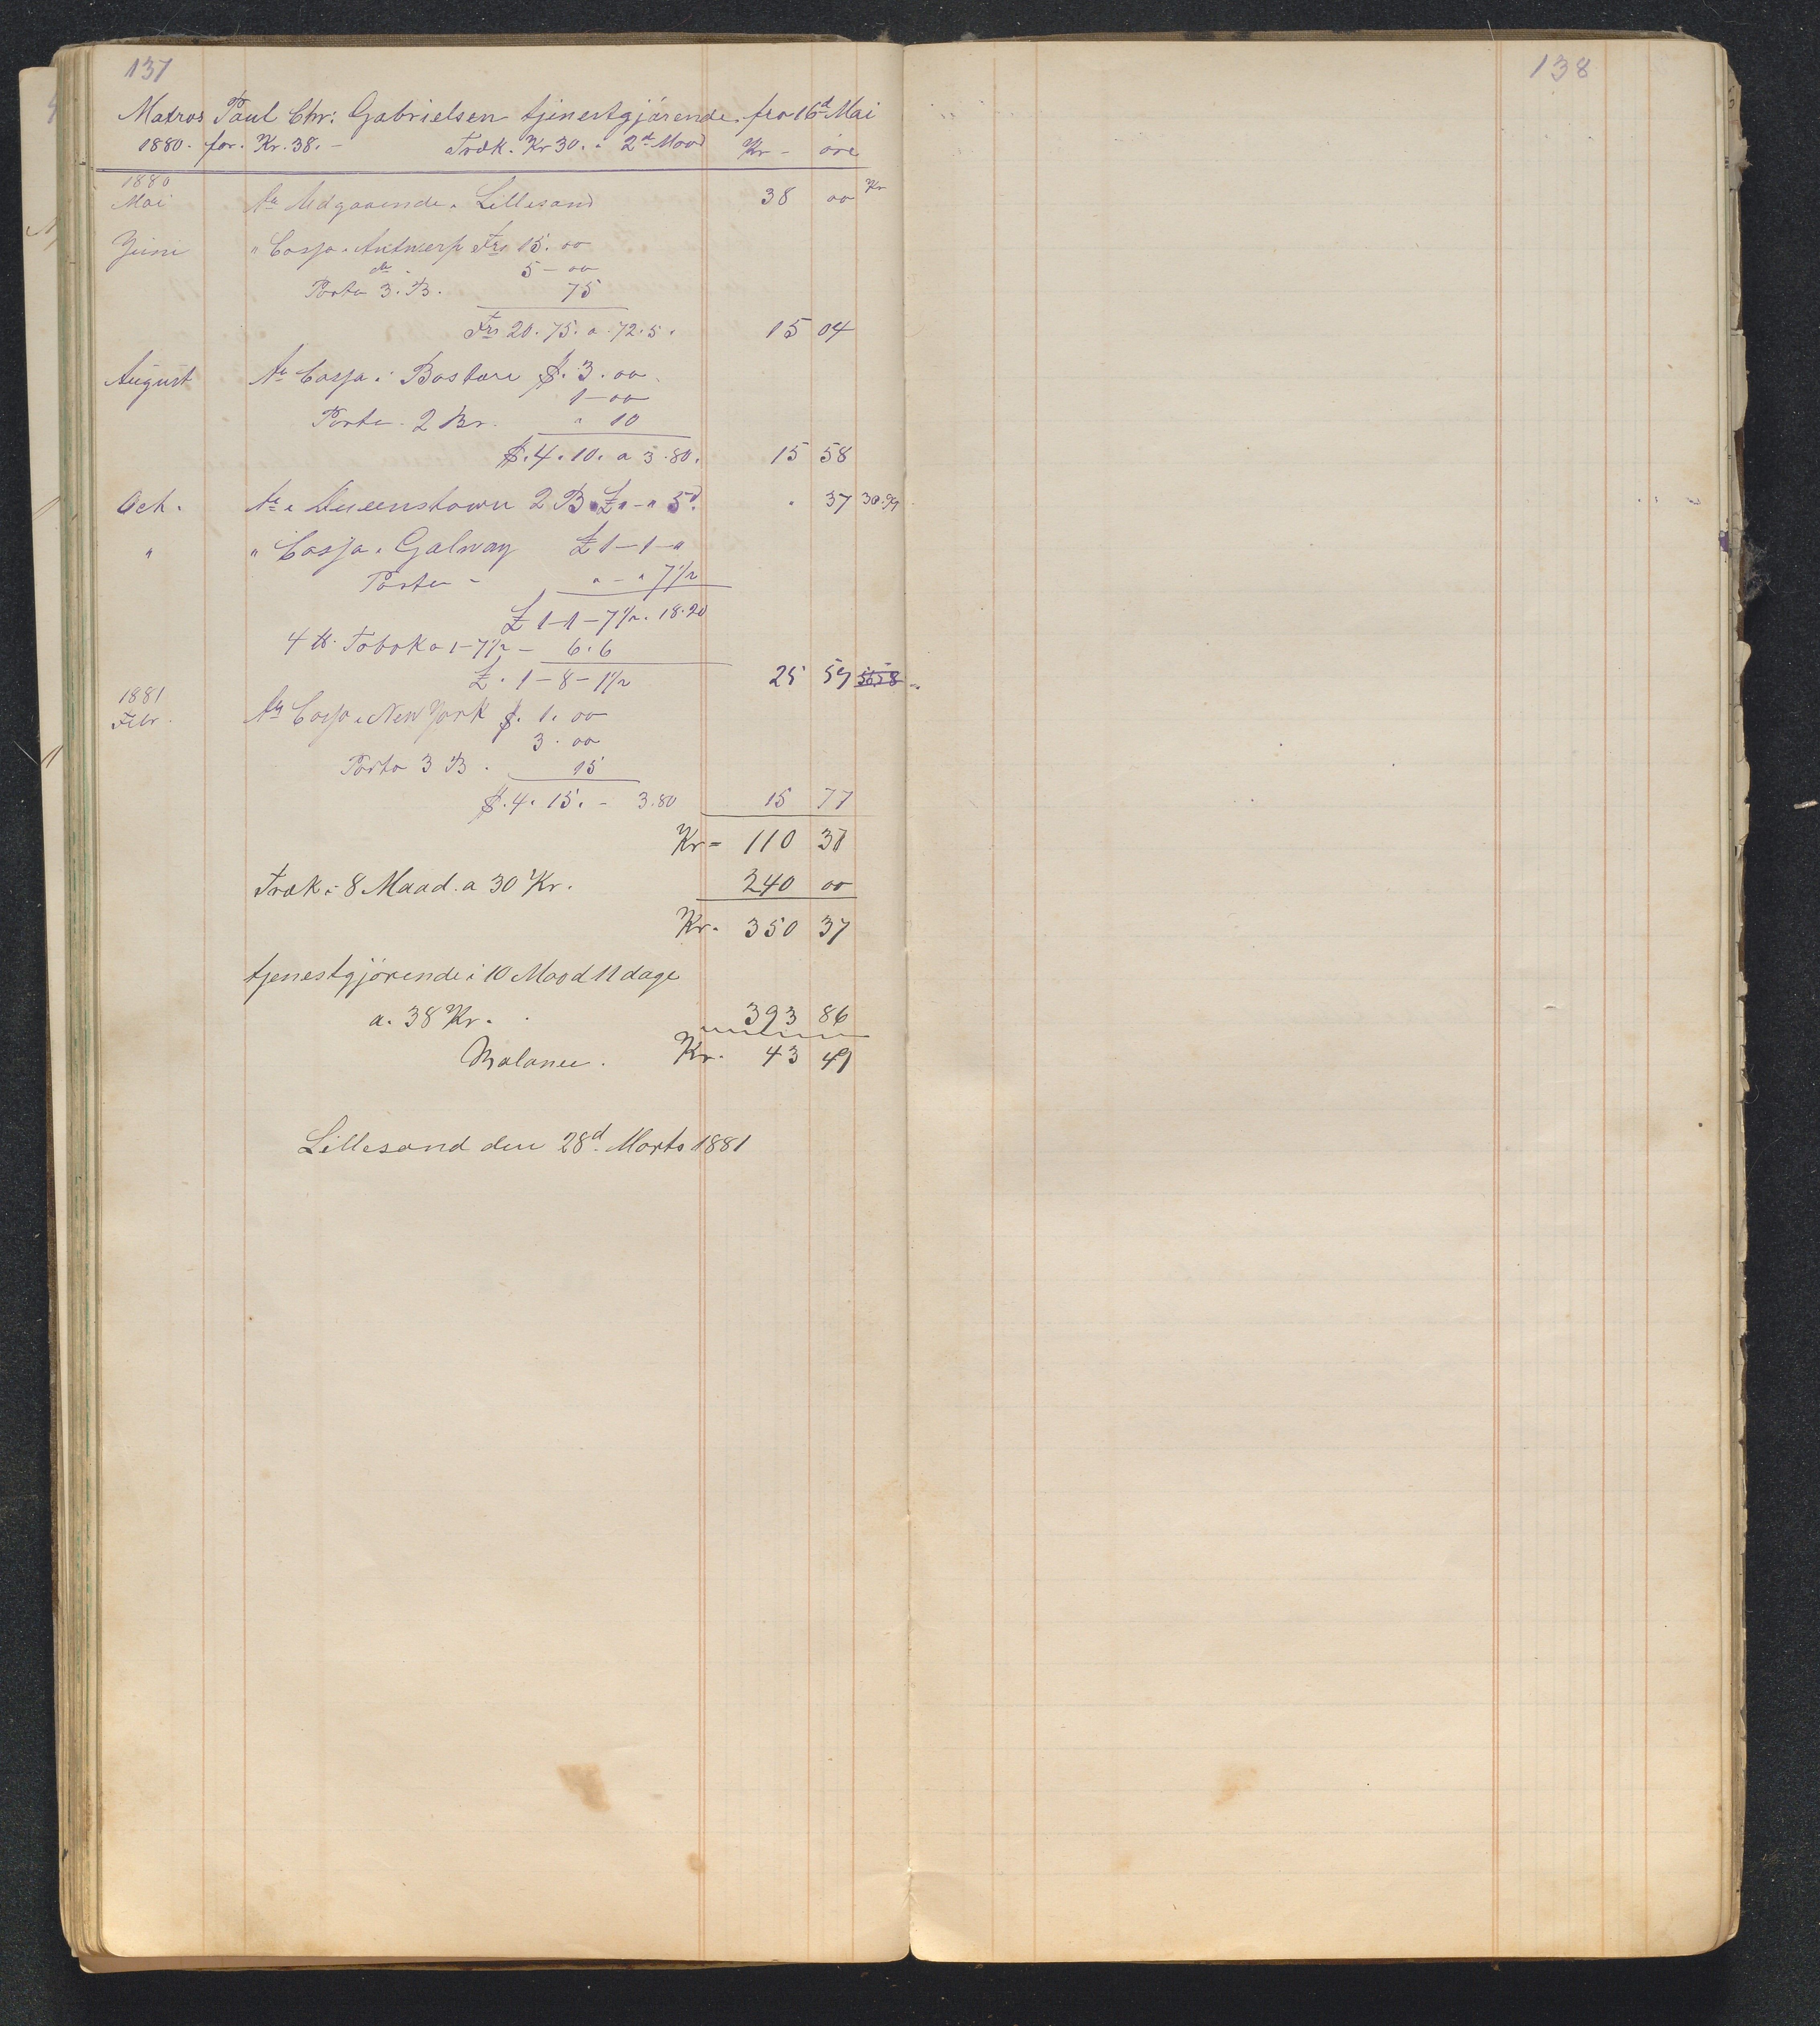 137
Matros Paul Chr: Gabrielsen tjenestgjörende fra 16d Mai
1880. for. Kr. 38. – Træk. Kr 30. 2d Maad Kr – öre
1880
Mai Ar Udgaaende i Lillesand 38 00 Kr
Juni " Cassa i Antwerp Frs 15. 00
do 5 – 00
Porto 3. B. 75
Frs 20. 75. a 72.5. 15 04
August Ar Cassa i Boston $. 3. 00
1 – 00
Porto. 2 Br. " 10
$. 4. 10. a 3.80. 15 58
Oct. Ar i Queenstown 2 B. £ " – " 5d. " 37 30.97
" " Cassa i Galway £ 1 – 1 – "
Porto – " – " 7 1/2
£ 1 – 1 – 7 1/2. 18.20
4 tt. Tobak a 1 – 7 1/2 – 6. 6
£. 1 – 8 – 1 1/2 25 59 5658
1881
Febr. Ar Cassa i New York $. 1. 00
3. 00
Porto 3 B. 15
$. 4. 15. – 3.80 15 77
Kr = 110 37
Træk i 8 Maad. a 30 Kr. 240 00
Kr. 350 37
tjenestgjörende i 10 Maad 11 dage
a. 38 Kr. 393 86
Balance. Kr. 43 49
Lillesand den 28d. Marts 1881
138